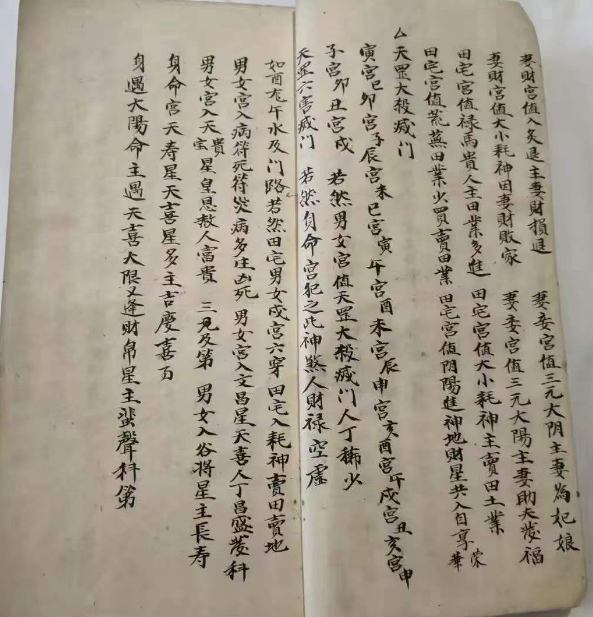 妻財宮值八灸退主妻財損退　妻妾宮值三元大阴主妻為妃娘
妻財宮值大小耗神因妻財敗家　妻妾宮值三元大陽主妻助夫發福
田宅宮值禄馬貴人主田業多進　田宅宮值大小耗神主賣田土業
田宅宮值荒蕪田業少買賣田業　田宅宮值阴陽進神地財星共入自享荣華
△天罡大殺滅门
寅宮巳　卯宮子　辰宮未　巳宮寅　午宮酉　未宮辰　申宮亥　酉宮午　戌宮丑　亥宮申
子宮卯　丑宮戌　若然男女宮值天罡大殺滅门人丁稀少
天罡六害滅门　若然身命宮犯之此神煞人財禄空虚
如酉年午水及门路若然田宅男女戌宮六穿田宅入耗神賣田賣地
男女宮入病符死符災病多庄凶死　男女宮入文昌星天喜人丁昌盛發科
男女宮入天貴宝星皇恩敖人富貴　三元及第　男女入谷将星主長寿
身命宮天寿星天喜星多主吉慶喜百
身遇大陽命主遇天喜大限又逢財帛星主蜚聲科第